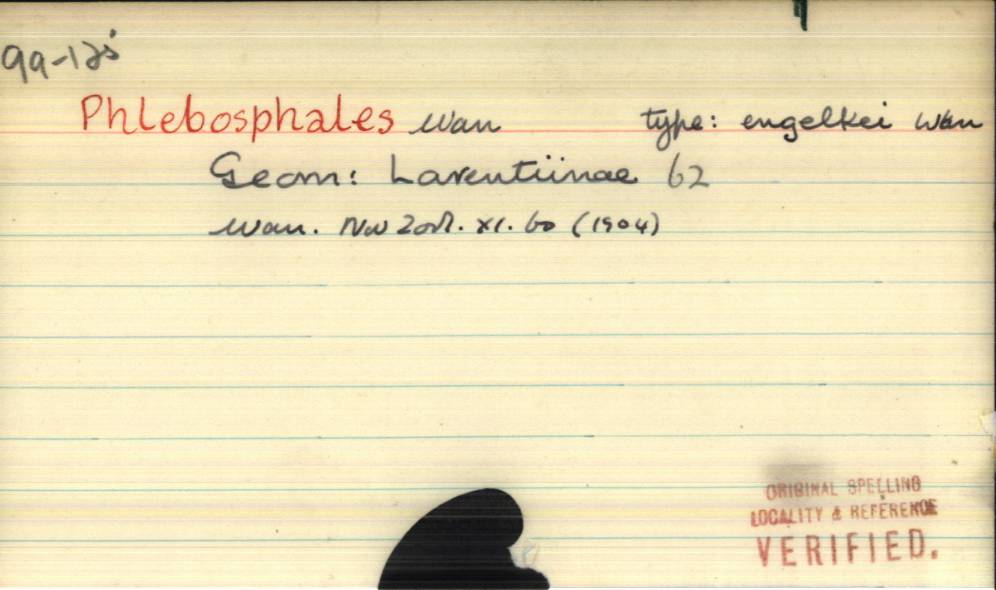 Phlebosphales Warr type: engelkei Warr
Geom: Larentiinae 62
Warr. Nov Zool. XI. 60 (1904)
ORIGINAL SPELLING
LOCALITY & REFERENCE
VERIFIED.